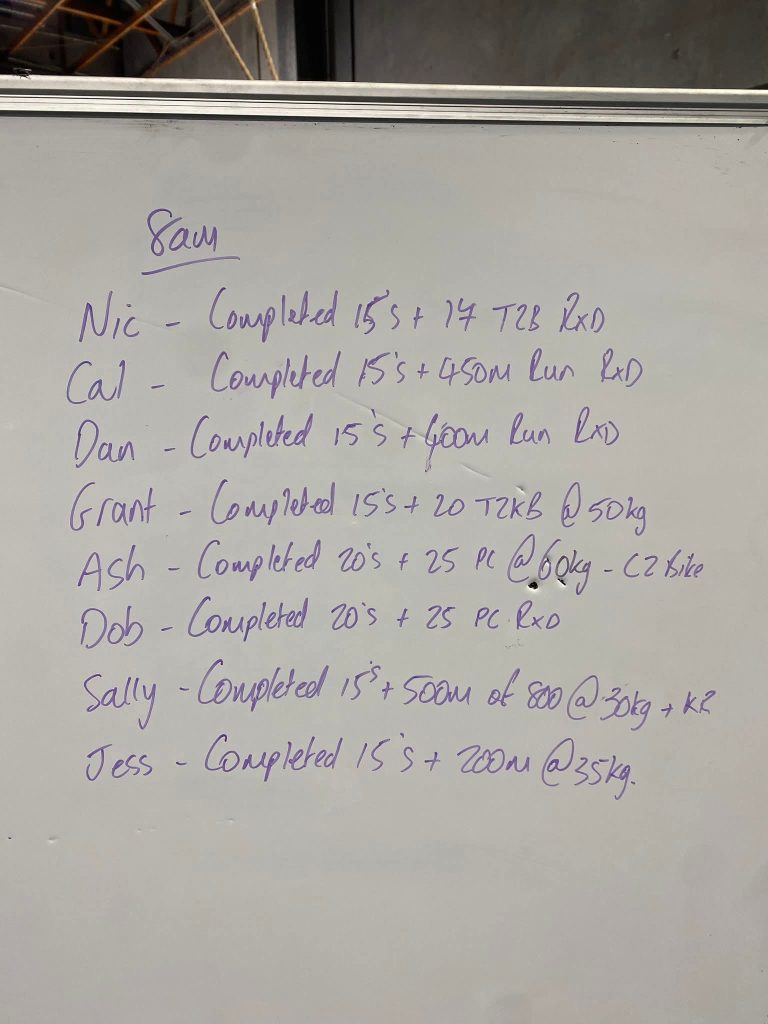 8am
Nic - Completed 15's + 17 T2B RxD
Cal - Completed 15's + 450m Run RxD
Dan - Completed 15's + 400m Run RxD
Grant - Completed 15's + 20 T2KB @ 50kg
Ash - Completed 20's + 25 PC @ 60kg - C2 Bike
Dob - Completed 20's + 25 PC RxD
Sally - Completed 15's + 500m of 800 @ 30kg + KR
Jess - Completed 15's + 200m @ 35kg.